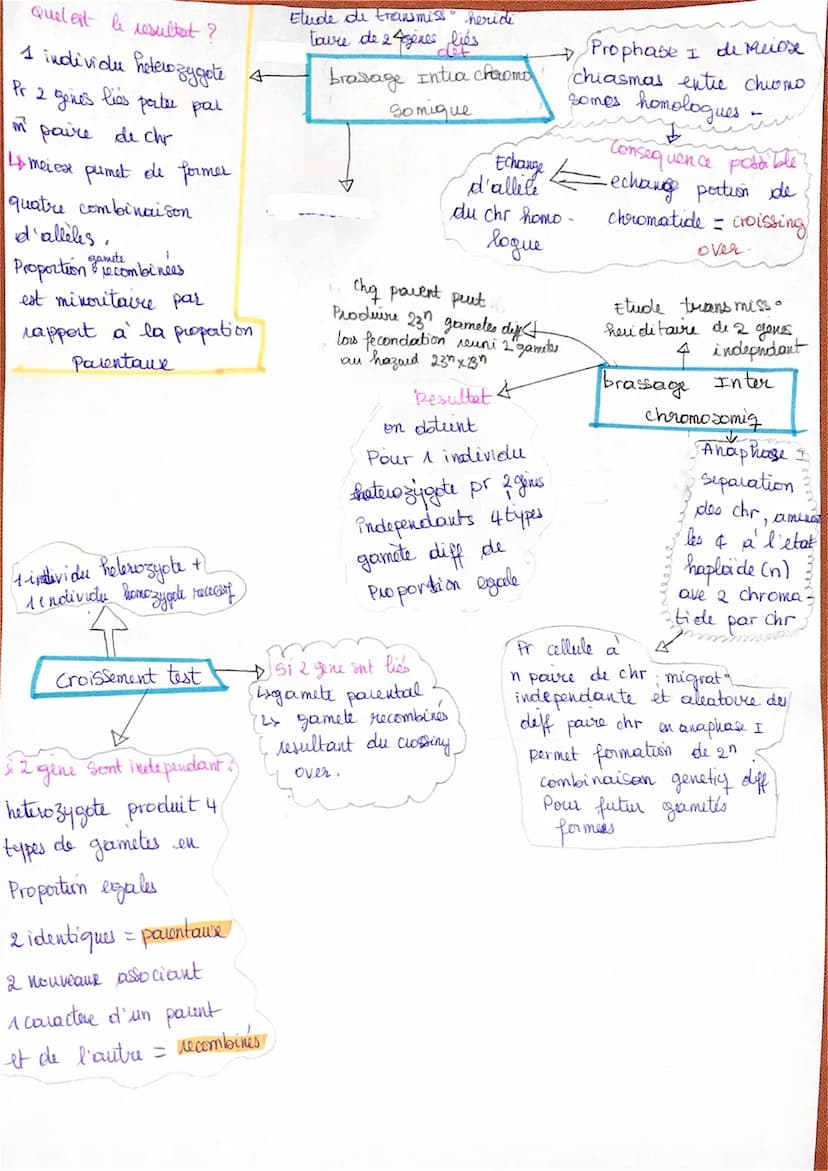 Quel est le resultat ?
1 individu heterozygote
Pr 2 gènes liés portée par
m̂ paire de chr
↳ meiose pumet de former
quatre combinaison
d'allèles.
Proportion gamete recombinées
est minoritaire par
rapport à la propoation
Parentaux
Etude de transmiss° heridi
taire de 2 gènes liés
def
brassage Intra chromo
somique
Prophase I de Meiose
chiasmas entre chromo
somes homologues -
Consequence possible
echange portion de
chromatide = croissing
over.
Echange
d'allèle
du chr homo -
logue
Chq parent peut
Produire 23ⁿ gametes diff
lors fecondation reuni 2 gametes
au hazard 23ⁿ x 23ⁿ
Etude transmiss°
heriditaire de 2 gènes
independant
brassage Inter
chromosomiq
Resultat
on obtient
Pour 1 individu
heterozygote pr 2 gènes
independants 4 types
gamète diff de
Proportion egale
Anaphase I
separation
des chr, amenant
les ¢ à l'état
haploïde (n)
ave 2 chroma-
tide par chr
Pr cellule à
n paire de chr : migrat°
independante et aleatoire des
diff paire chr en anaphase I
permet formation de 2ⁿ
combinaison genetiq diff
Pour futur gametés
formees
1 individu heterozygote +
1 individu homozygote recessif
Croissement test
Si 2 gène snt liés
↳ gamete parental
↳ gamete recombinés
resultant du crossing
over.
si 2 gène sont independant :
heterozygote produit 4
types de gamètes en
Proportion egales
2 identiques = parentaux
2 nouveaux associant
1 caractère d'un parent
et de l'autre = recombinés